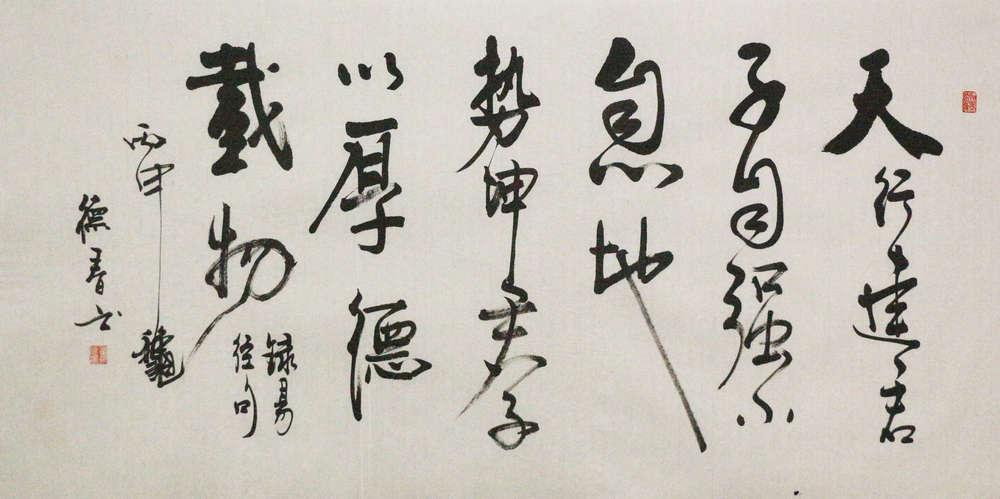 天行健君
子自强不
息地
势坤君子
以厚德
載物
録易
经句
丙申龝
德春书